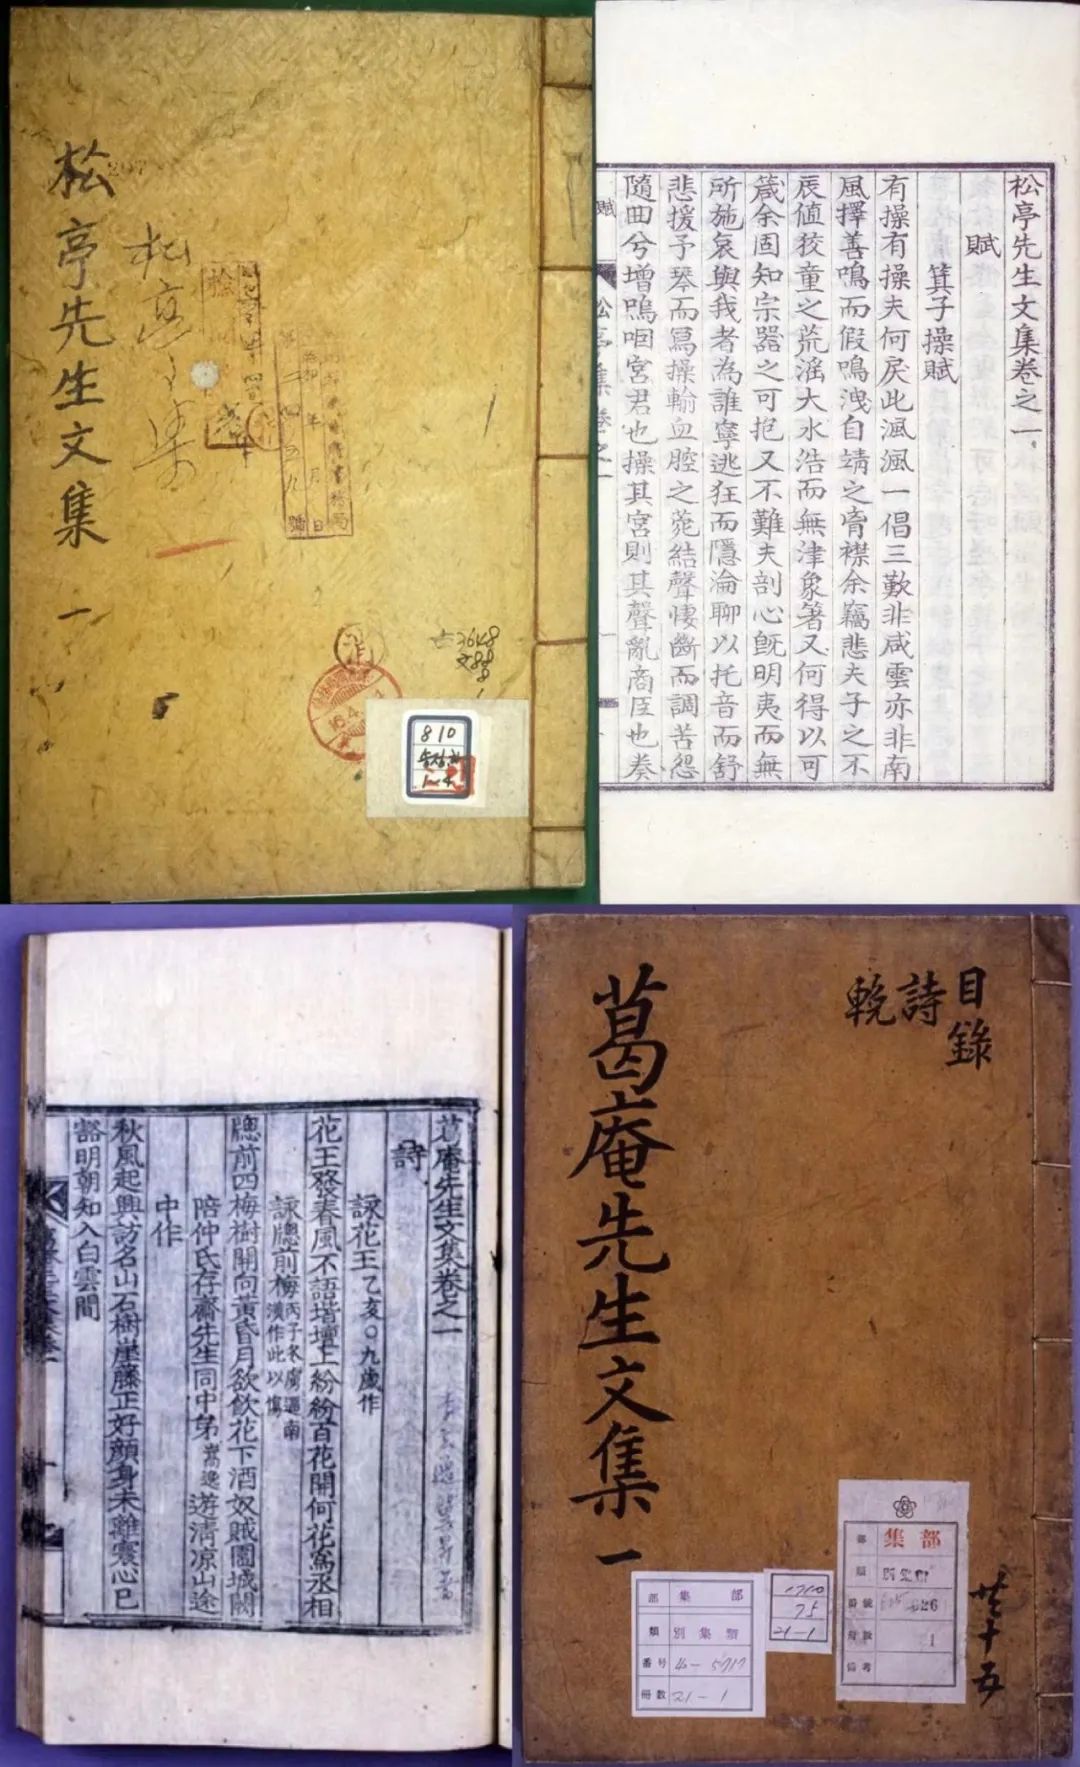 松亭先生文集 一
810
1~4
松亭先生文集卷之一
賦
箕子操賦
有操有操夫何戾此渢渢一倡三歎非咸雲亦非南
風擇善鳴而假鳴洩自靖之胷襟余竊悲夫子之不
辰値狡童之荒滛大水浩而無津象箸又何得以可
箴余固知宗器之可抱又不難夫剖心旣明夷而無
所施哀與我者為誰寧逃狂而隱淪聊以托音而舒
悲援予琴而寫操輸血腔之菀結聲悽斷而調苦怨
隨曲兮增嗚咽宮君也操其宮則其聲亂商臣也奏
葛庵先生文集卷之一
詩
詠花王乙亥○九歲作
花王發春風不語階壇上紛紛百花開何花爲丞相
詠牕前梅丙子冬虜逼南漢作此以傷
牕前四梅樹開向黃昏月欲飮花下酒奴賊圍城闕
陪仲氏存齋先生同中弟嵩逸遊淸凉山途
中作
秋風起興訪名山石樹崖藤正好顔身未離寰心已
豁明朝知入白雲間
目錄
詩
輓
葛庵先生文集 一
共十五
部 集部
類 別集類
番号 4-5717
冊數 21-1
1710
75
21-1
部 集部